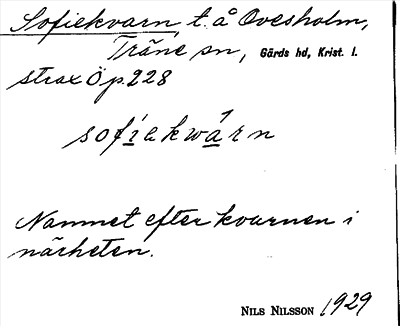 Sofiekvarn, t. å Ovesholm,
Träne sn, Gärds hd, Krist. l.
strax Ö p. 228
sofiekwárn
Namnet efter kvarnen i
närheten.
NILS NILSSON 1929